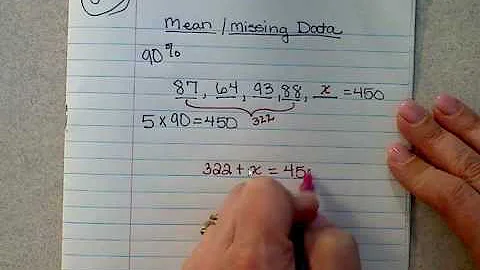 Mean / missing Data
90%
87, 64, 93, 88, x = 450
5 x 90 = 450 322
322 + x = 45